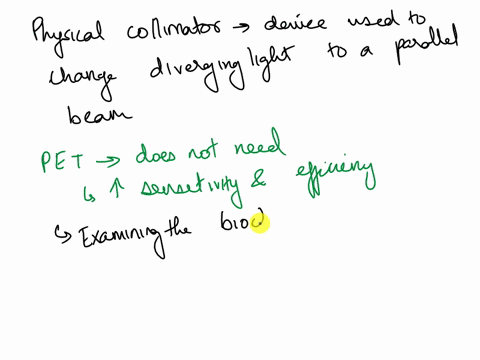 Physical collimator → device used to
change diverging light to a parallel
beam
PET → does not need
↳ ↑ sensetivity & efficieny
↳ Examining the biod